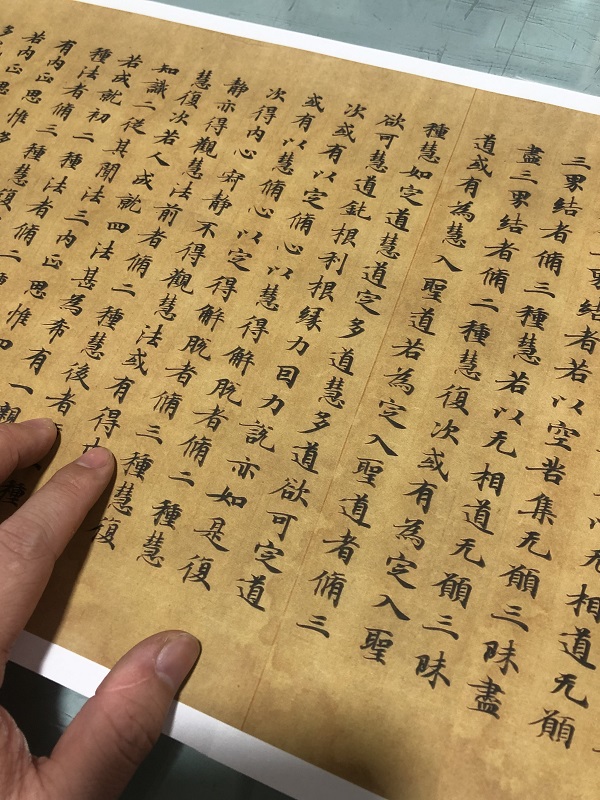 以无相道无願
界結者若以空苦集无願三昧盡
三界結者脩三種慧若以无相道无願三昧
盡三界結者脩二種慧復次或有為定入聖
道或有為慧入聖道若為定入聖道者脩三
種慧如定道慧道定多道慧多道欲可定道
欲可慧道鈍根利根緣力因力說亦如是復
次或有以定脩心以慧得解脫者脩二種慧
或有以慧脩心以定得解脫者脩三種慧復
次得内心寂靜不得觀慧法或有得内
靜亦得觀慧法前者脩二種慧後者
慧復次若人成就四法甚為希有一親
知識二從其聞法三内正思惟四
若成就初二種法者脩二種
種法者脩三種慧復
有内正思惟多
若内正思
多